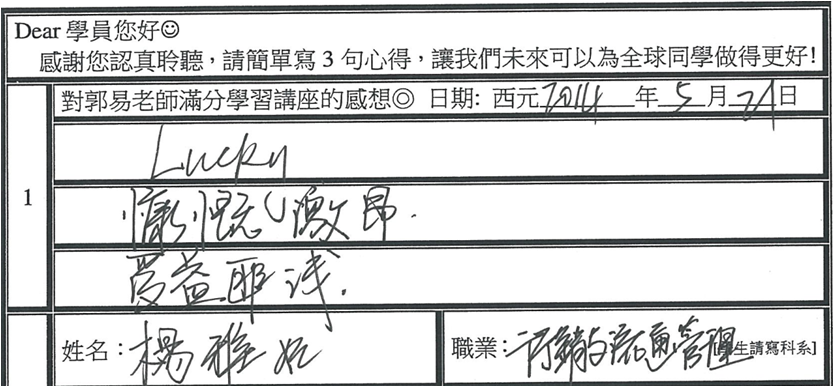 Dear 學員您好☺
感謝您認真聆聽，請簡單寫3句心得，讓我們未來可以為全球同學做得更好!
對郭易老師滿分學習講座的感想◎ 日期: 西元 2014 年 5 月 21 日
1
Lucky
慷慨激昂.
受益匪浅.
姓名：楊雅如
職業：行銷流通管理 [學生請寫科系]